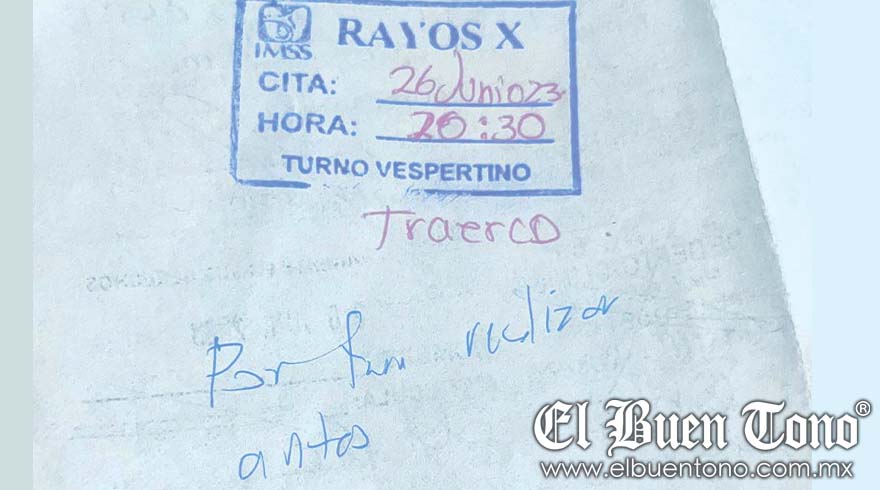 IMSS RAYOS X
CITA: 26 Junio 23
HORA: 20:30
TURNO VESPERTINO
Traer CD
Por fav realizar
antes
El Buen Tono®
www.elbuentono.com.mx